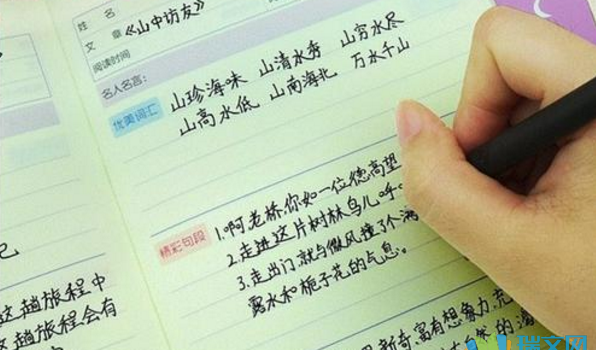 姓 名
文 章 《山中访友》
阅读时间
名人名言：
优美词汇 山珍海味 山清水秀 山穷水尽
山高水低 山南海北 万水千山
精彩句段 1.啊老桥你如一位德高望
2.走进这片树林鸟儿呼
3.走出门，就与微风撞了个满
露水和栀子花的气息。
这趟旅程中
这趟旅程会有
新奇，富有想象力，充
自然的
瑞文网